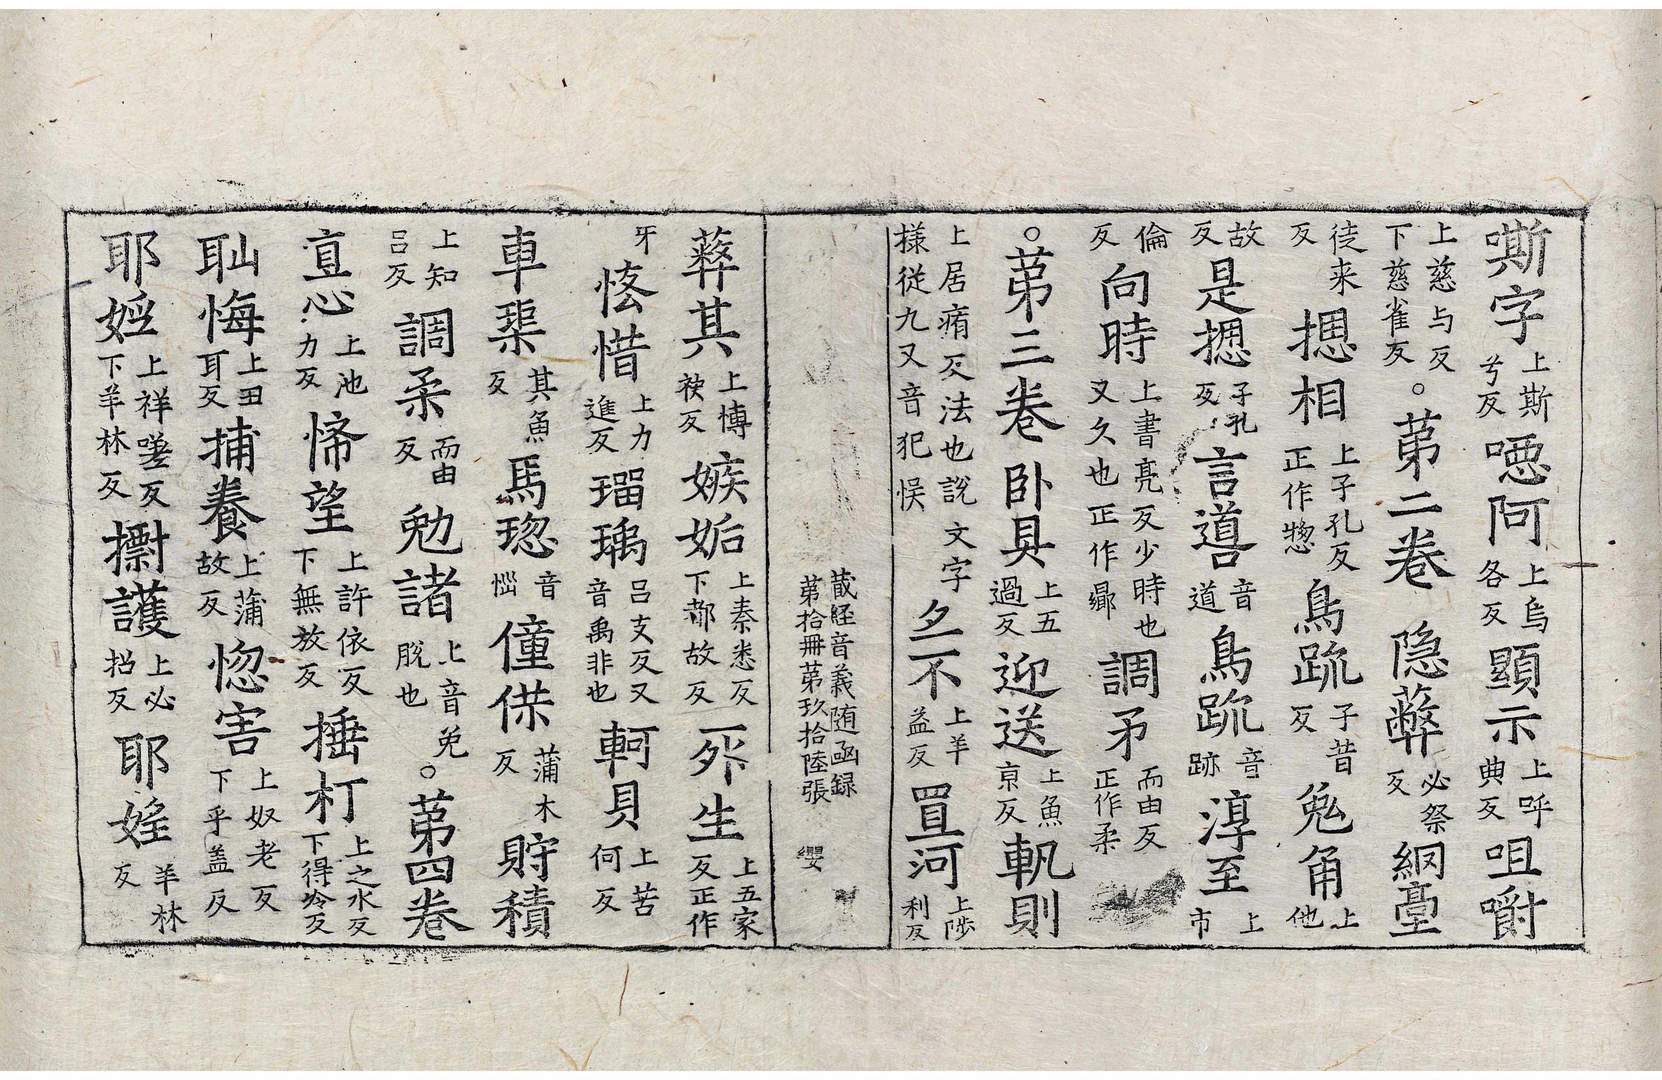 嘶字上斯兮反𠸦阿上烏各反顯示上呼典反咀嚼
上慈与反下慈雀反。苐二卷隐蔽必祭反網䑓
徒来反揌相上子孔反正作惣鳥䟽子昔反兔角上他
故反是揌子孔反言噵音道鳥䟽音跡淳至上市
倫反向時上書亮反少時也又久也正作曏調矛而由反正作柔
。苐三卷卧具上五過反迎送上魚京反軓則
上居洧反法也說文字樣従九又音犯悮亾不上羊益反罝河上陟利反
蔵経音義随函録
苐拾冊苐玖拾陸張 纓
蕣其上博袂反嫉姤上秦悉反下都故反𤘅生上五家反正作
牙恡惜上力進反瑠瑀呂支反又音禹非也軻貝上苦何反
車𤦲其魚反馬𤧚音惱僮僕蒲木反貯積
上知呂反調柔而由反勉諸上音免脫也。苐四卷
𢛳心上池力反悕望上許依反下無放反捶打上之水反下得冷反
耻悔上丑耳反捕養上蒲故反惱害上奴老反下乎盖反
耶婬上祥嗟反下羊林反擯護上必招反耶婬羊林反